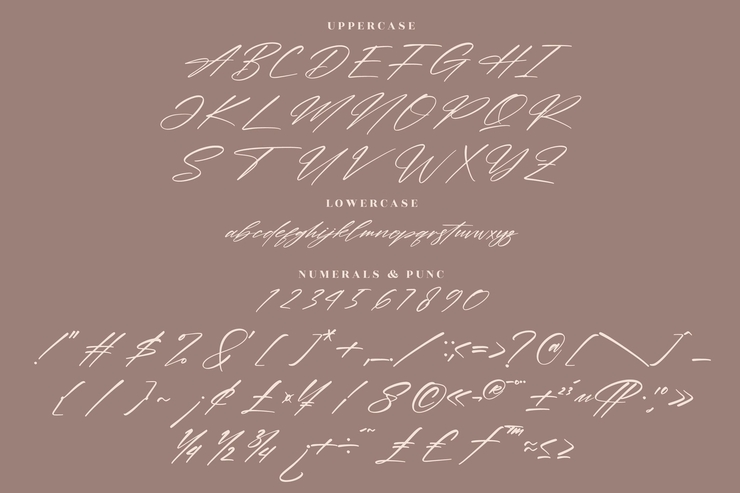 UPPERCASE
ABCDEFGHI
JKLMNOPQR
STUVWXYZ
LOWERCASE
abcdefghijklmnopqrstuvwxyz
NUMERALS & PUNC
1234567890
!"#$%&'()*+,-./:;<=>?@[\]^_
{|}~¡¢£¤¥¦§©«¬®¯°±²³´µ¶·¸¹º»
¼½¾¿×÷ˆ˜₤€ƒ™≈≤≥